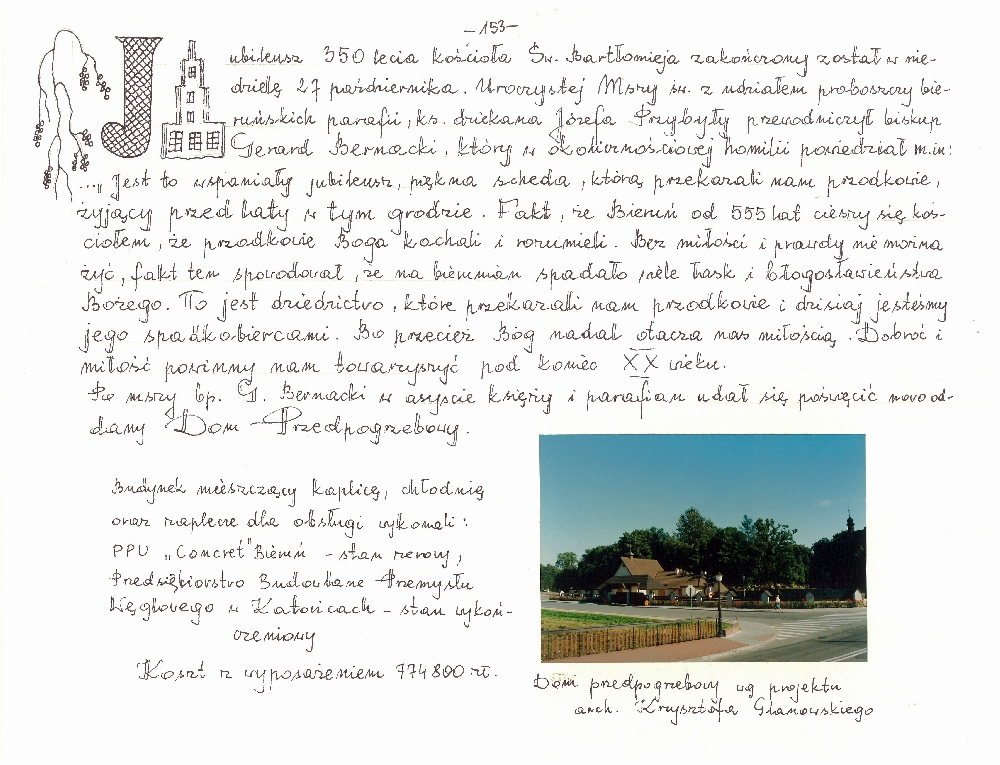 -153-
Jubileusz 350 lecia kościoła Św. Bartłomieja zakończony został w nie-
dzielę 27 października. Uroczystej Mszy św. z udziałem proboszczy bie-
ruńskich parafii, ks. dziekana Józefa Przybyły przewodniczył biskup
Gerard Bernacki, który w okolicznościowej homilii powiedział m.in:
..."Jest to wspaniały jubileusz, piękna scheda, którą przekazali nam przodkowie,
żyjący przed laty w tym grodzie. Fakt, że Bieruń od 555 lat cieszy się koś-
ciołem, że przodkowie Boga kochali i rozumieli. Bez miłości i prawdy nie można
żyć, fakt ten spowodował, że na bierunian spadało wiele łask i błogosławieństwa
Bożego. To jest dziedzictwo, które przekazali nam przodkowie i dzisiaj jesteśmy
jego spadkobiercami. Bo przecież Bóg nadal otacza nas miłością. Dobroć i
miłość powinny nam towarzyszyć pod koniec XX wieku.
Po mszy bp. G. Bernacki w asyście księży i parafian udał się poświęcić nowo od-
dany Dom Przedpogrzebowy.
Budynek mieszczący kaplicę, chłodnię
oraz zaplecze dla obsługi wykonali:
PPU "Concret" Bieruń - stan zerowy,
Przedsiębiorstwo Budowlane Przemysłu
Węglowego w Katowicach - stan wykoń-
czeniowy
Koszt z wyposażeniem 774800 zł.
Dom przedpogrzebowy wg projektu
arch. Krzysztofa Glanowskiego